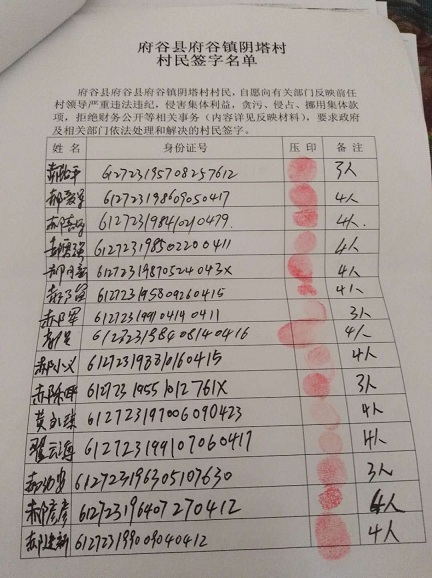 府谷县府谷镇阴塔村
村民签字名单
府谷县府谷县府谷镇阴塔村村民，自愿向有关部门反映前任
村领导严重违法违纪，侵害集体利益，贪污、侵占、挪用集体款
项，拒绝财务公开等相关事务（内容详见反映材料），要求政府
及相关部门依法处理和解决的村民签字。
姓 名 身份证号 压 印 备 注
612723195708257612 3人
612723198609050417 4人
612723198410210479. 4人.
612723198502200411 4人
61272319870524043X 4人
612723195809260415 4人
郝军 3人
4人
郝小义 4人
61272319551012761X 3人
612723197006090423 4人
612723199107060417 4人
612723196305107630 3人
郝彦彦 612723196407270412 4人
郝建新 612723199009040412 4人